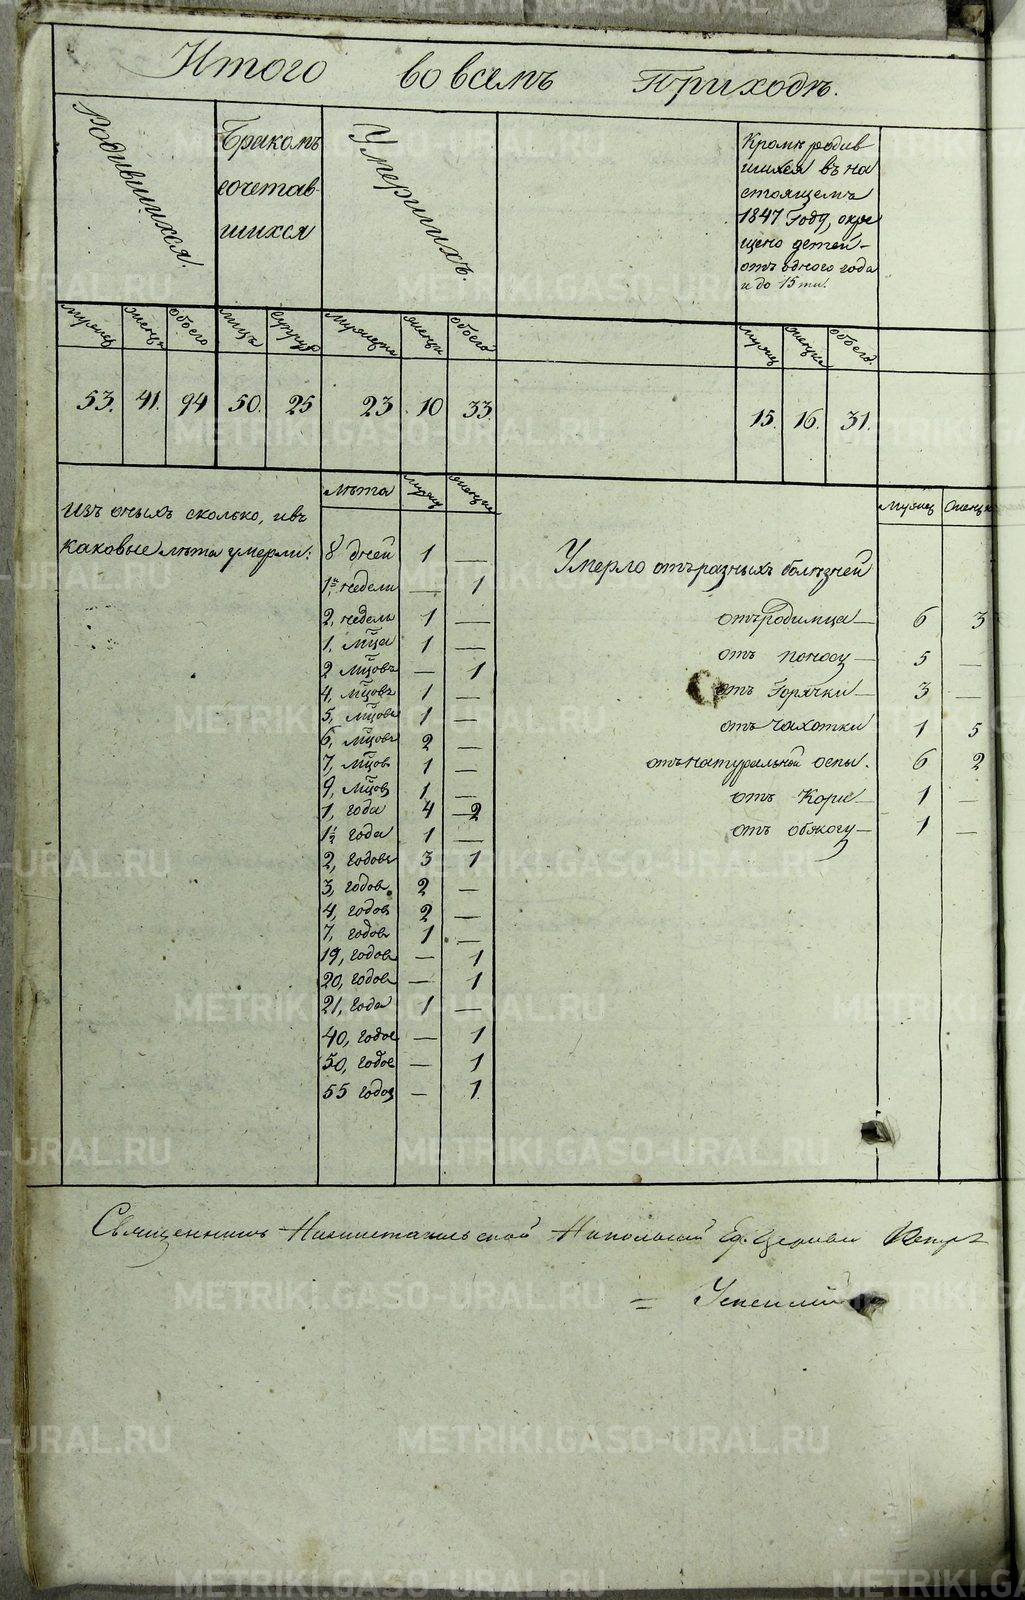 Итого во всемъ Приходѣ.
Родившихся.
Бракомъ
сочетав
шихся
Умершихъ.
Кромѣ родив
шихся въ на
стоящемъ
1847 Году, окре
щено детей
отъ одного года
и до 15ти.
мужеск женск обоего лицъ супруж мужеска женска обоего мужеск женска обоего.
53. 41. 94 50. 25 23 10 33. 15. 16. 31.
Изъ оныхъ сколько, ивъ
каковые лѣта умерли:
лѣта мужеск женска
8 дней 1 —
1. недели — 1
2. недель 1 —
1, мца 1 —
2 мцовъ — 1
4, мцовъ 1 —
5, мцовъ 1 —
6, мцовъ 2 —
7, мцовъ 1 —
9, мцовъ 1 —
1, года 4 2
1½ года 1 —
2, годовъ 3 1
3, годовъ 2 —
4, годовъ 2 —
7, годовъ 1 —
19, годовъ — 1
20, годовъ — 1
21, года 1 —
40, годов — 1
50, годов — 1
55 годов — 1.
мужеск женск
Умерло отъ разныхъ болѣзней
отъ родимца — 6 3
отъ поносу — 5 —
отъ Горячки — 3 —
отъ Чахотки 1 5
отъ натуральной оспы. 6 2
отъ Кори — 1 —
отъ обжогу — 1 —
Священникъ Николаевской Ед. Церкви Петръ
= Успенскій
METRIKI.GASO-URAL.RU